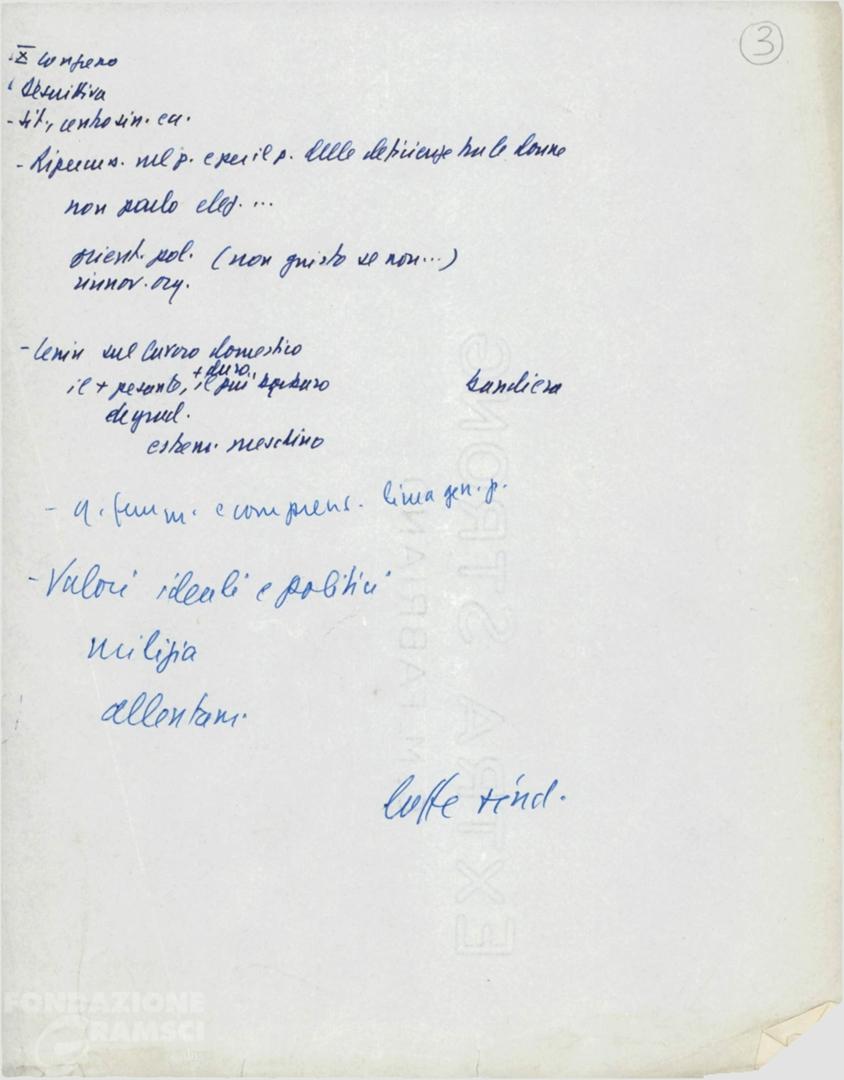 3
X Congresso
- sit. centro sin. ecc.
- Ripercuss. nel p. e per il p. delle deficienze tra le donne
non parlo eleg. ...
orient. pol. (non giusto se non...)
rinnov. org.
- Lenin sul lavoro domestico
+ duro
il + pesante, il più barbaro bandiera
degrad.
estrem. meschino
- q. femm. e comprens. linea gen. p.
- Valori ideali e politici
milizia
allentam.
lotte sind.
M. FABRIANO
EXTRA STRONG
FONDAZIONE
GRAMSCI